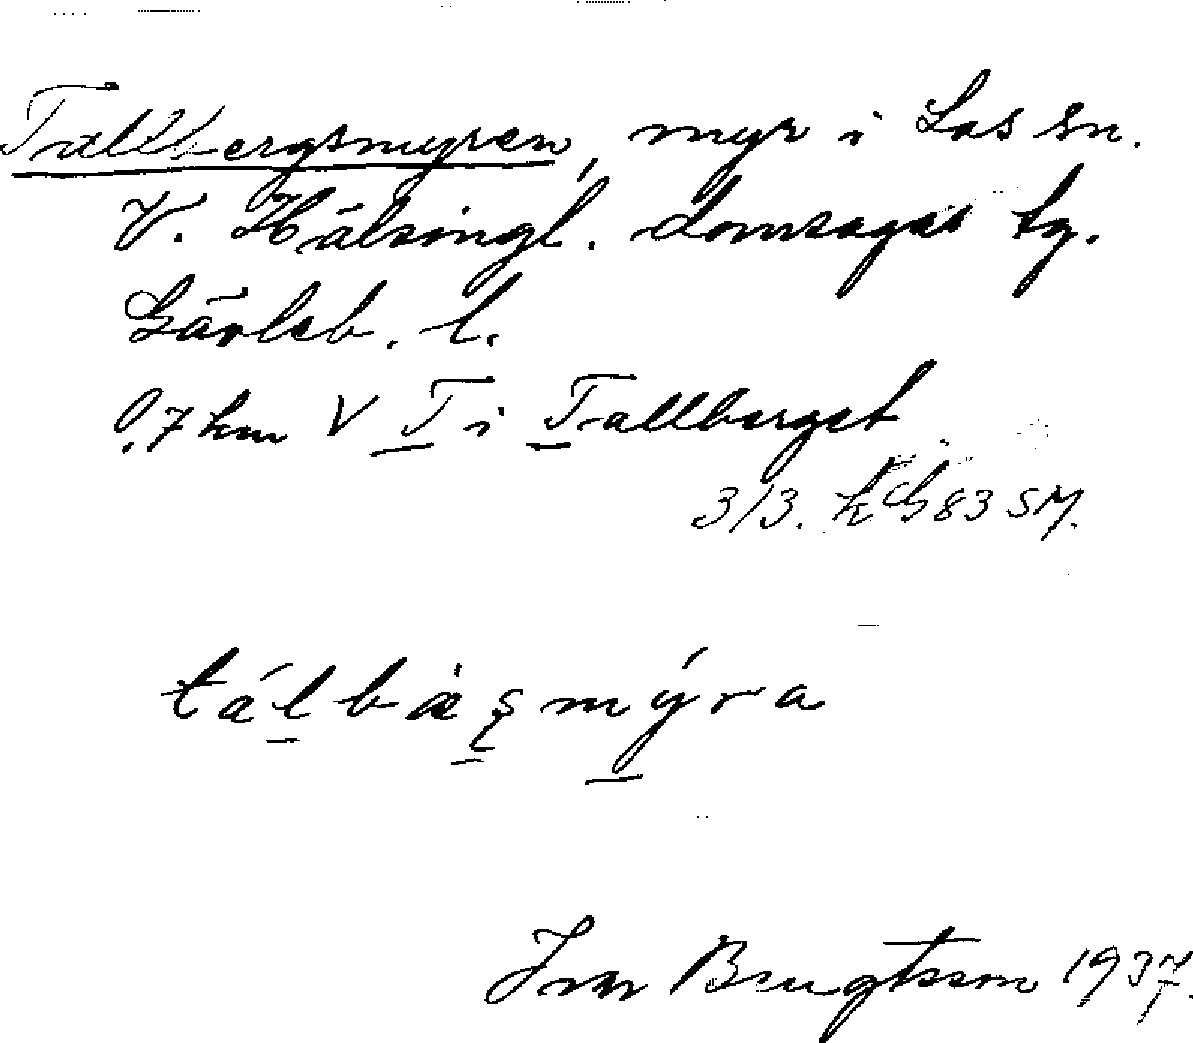 Tallbergsmyren, myr i Los sn.
V. Hälsingl. domsagas tg.
Gävleb. l.
0,7 km V T i Tallberget
3/3. KG 83 SM.
tálbäʂmýra
Bengtsson 1937.